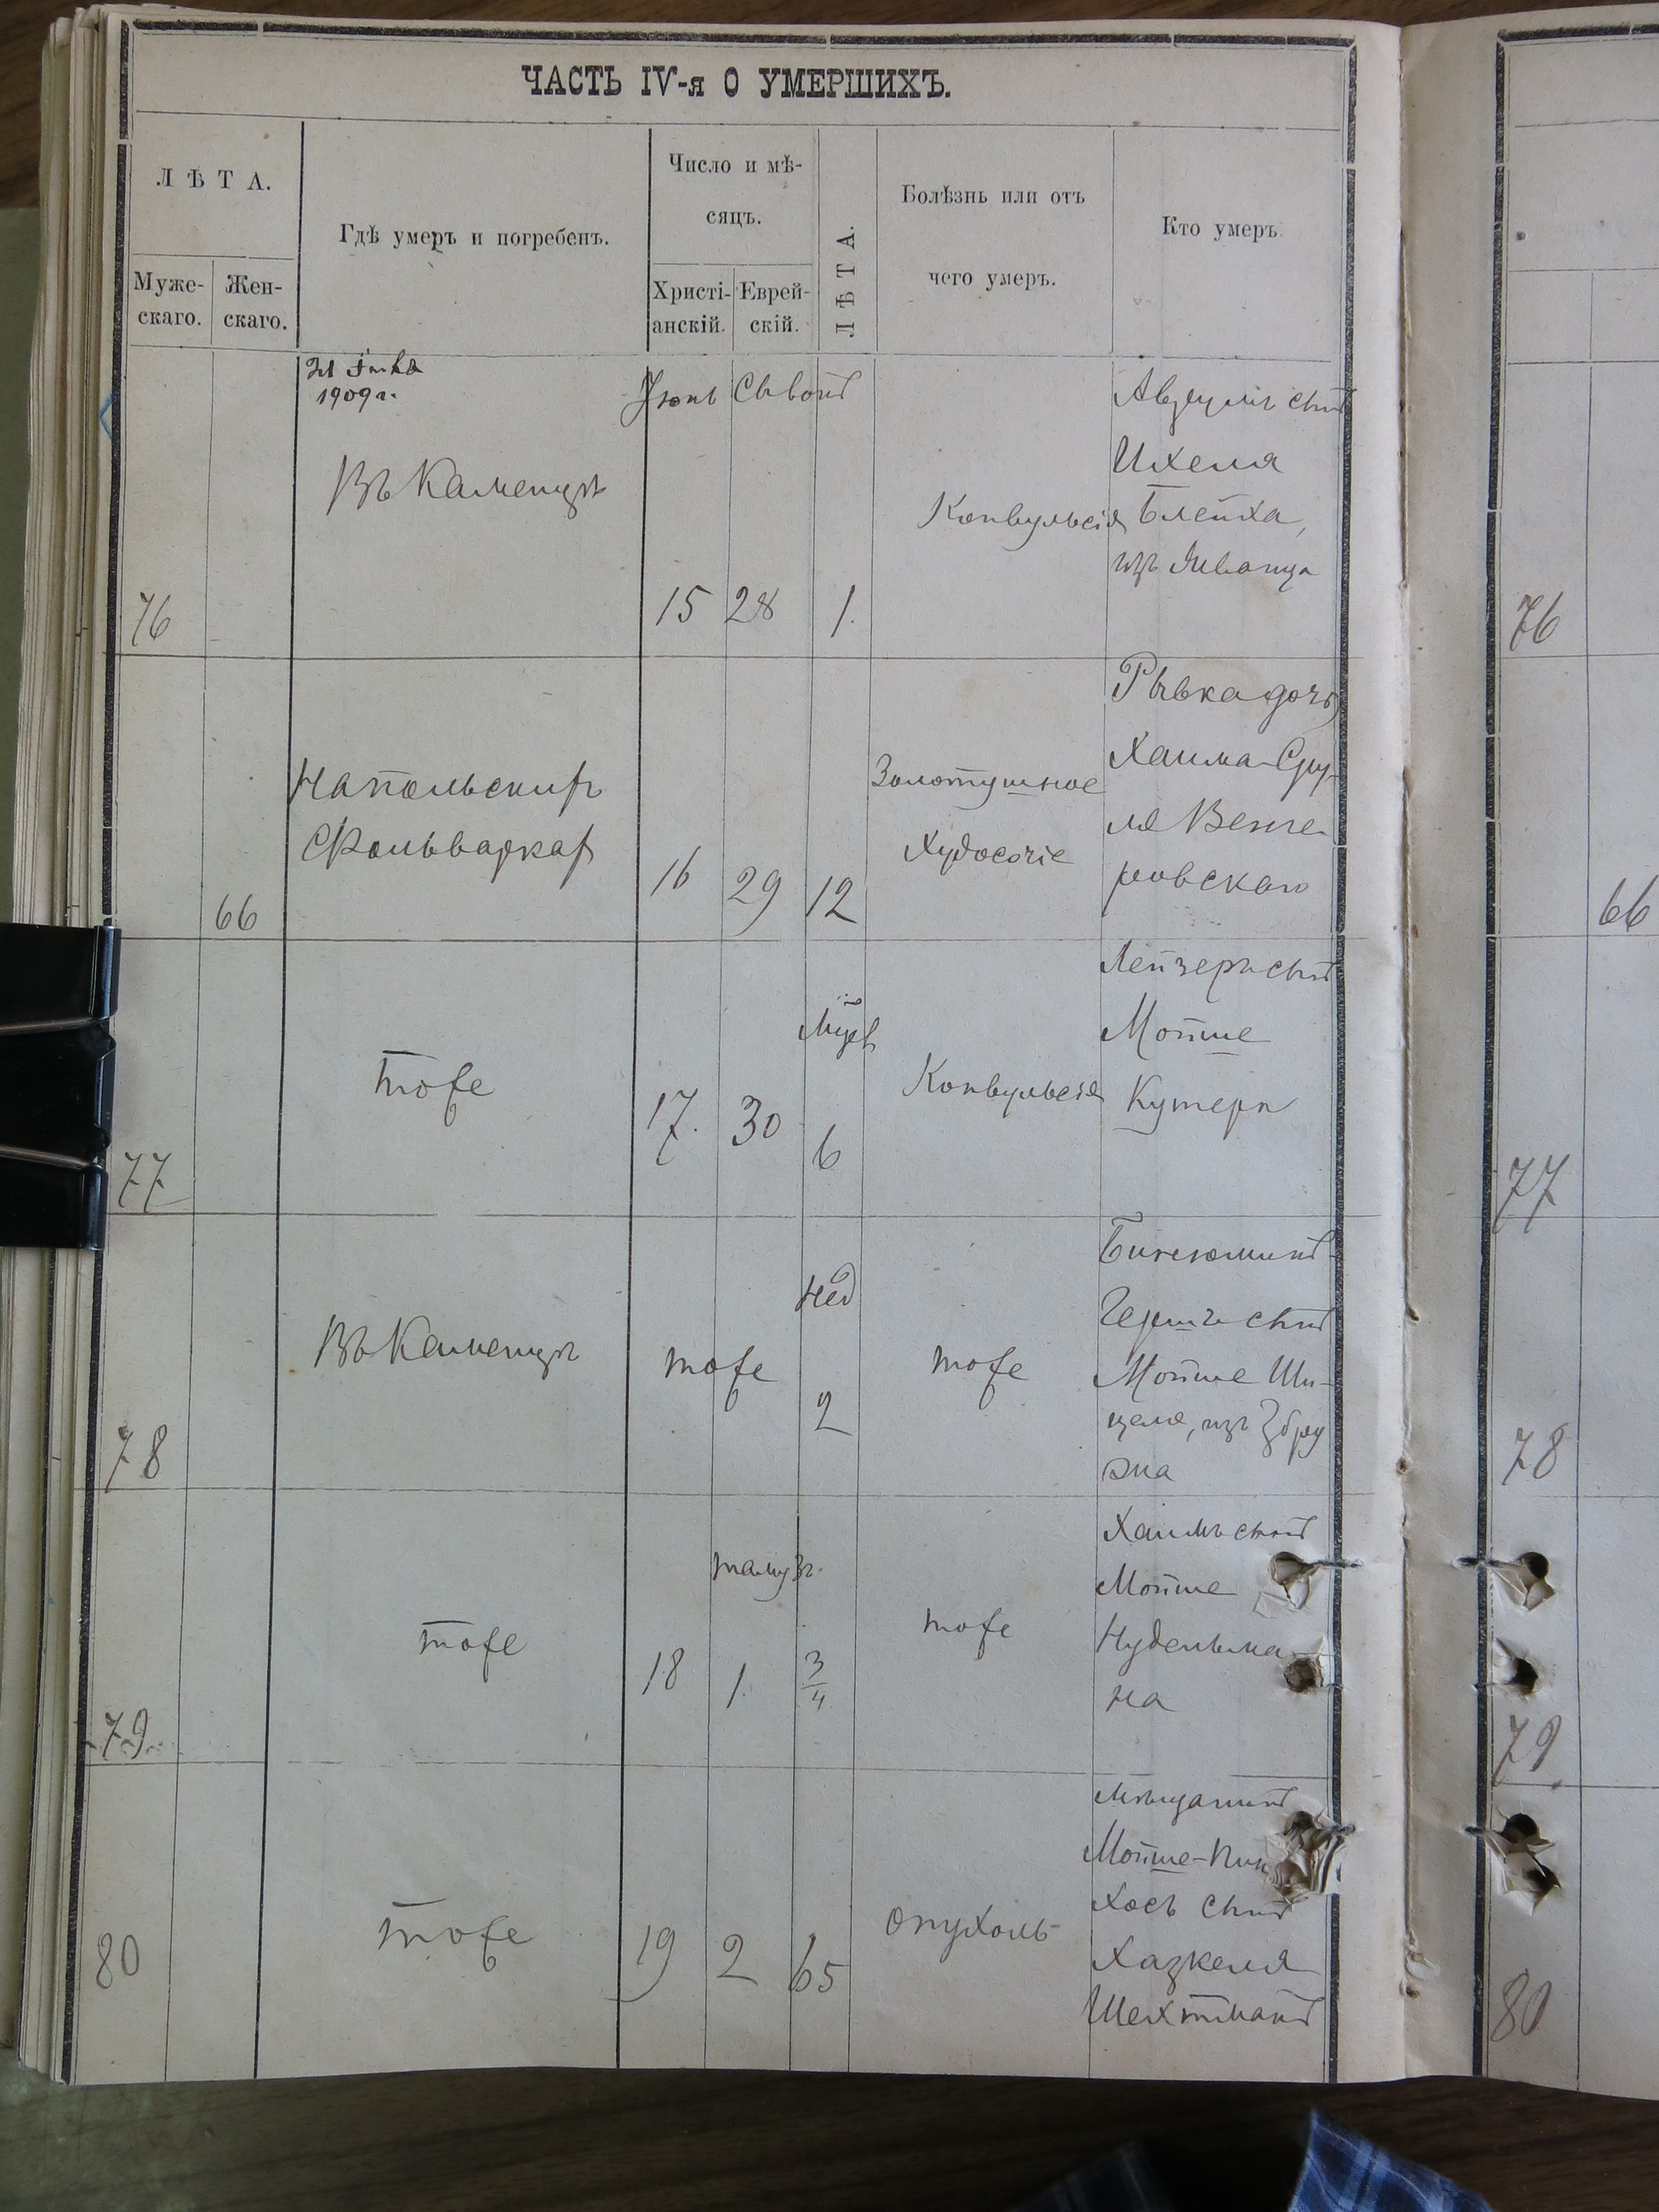 ЧАСТЬ IV-я О УМЕРШИХЪ.
ЛѢТА.
Муже-
скаго.
Жен-
скаго.
Гдѣ умеръ и погребенъ.
Число и мѣ-
сяцъ.
Христі-
анскій.
Еврей-
скій.
ЛѢТА.
Болѣзнь или отъ
чего умеръ.
Кто умеръ.
1909 г.
Іюнь Сывонъ
76
Въ Каменцѣ
15
28
1.
Конвульсія
Авзумъ сынъ
Ихеля
Блейха,
изъ Жванца
76
66
На польскихъ
Фольваркахъ
16
29
12
Золотушное
Худосочіе
Рывка дочь
Хаима-Сру-
ля Венге-
ровскаго
66
77
тоже
17.
30
Мцев
6
Конвульсія
Лейзеръ сынъ
Мойше
Кутера
77
78
Въ Каменцѣ
тоже
Нед
2
тоже
Биньюминъ-
Гершъ сынъ
Мойше Ши-
целя, изъ Збру
78
79
тоже
тамузъ.
18
1.
3/4
тоже
Хаимъ сынъ
Мойше
Нудельма-
на
79
80
тоже
19
2
65
опухоль
мѣщанинъ
Мойше-Пин
хосъ сынъ
Хазкеля
Шехтманъ
80